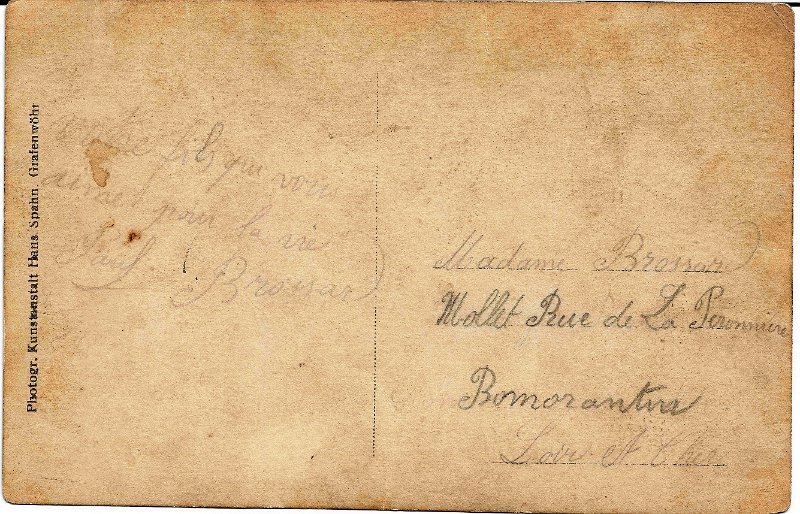 Photogr. Kunstanstalt Hans Spahn, Grafenwöhr
votre fils qui vous
aime pour la vie
Paul Brossard
Madame Brossard
Mollet Rue de La Peronniere
Romorantin
Loir et Cher